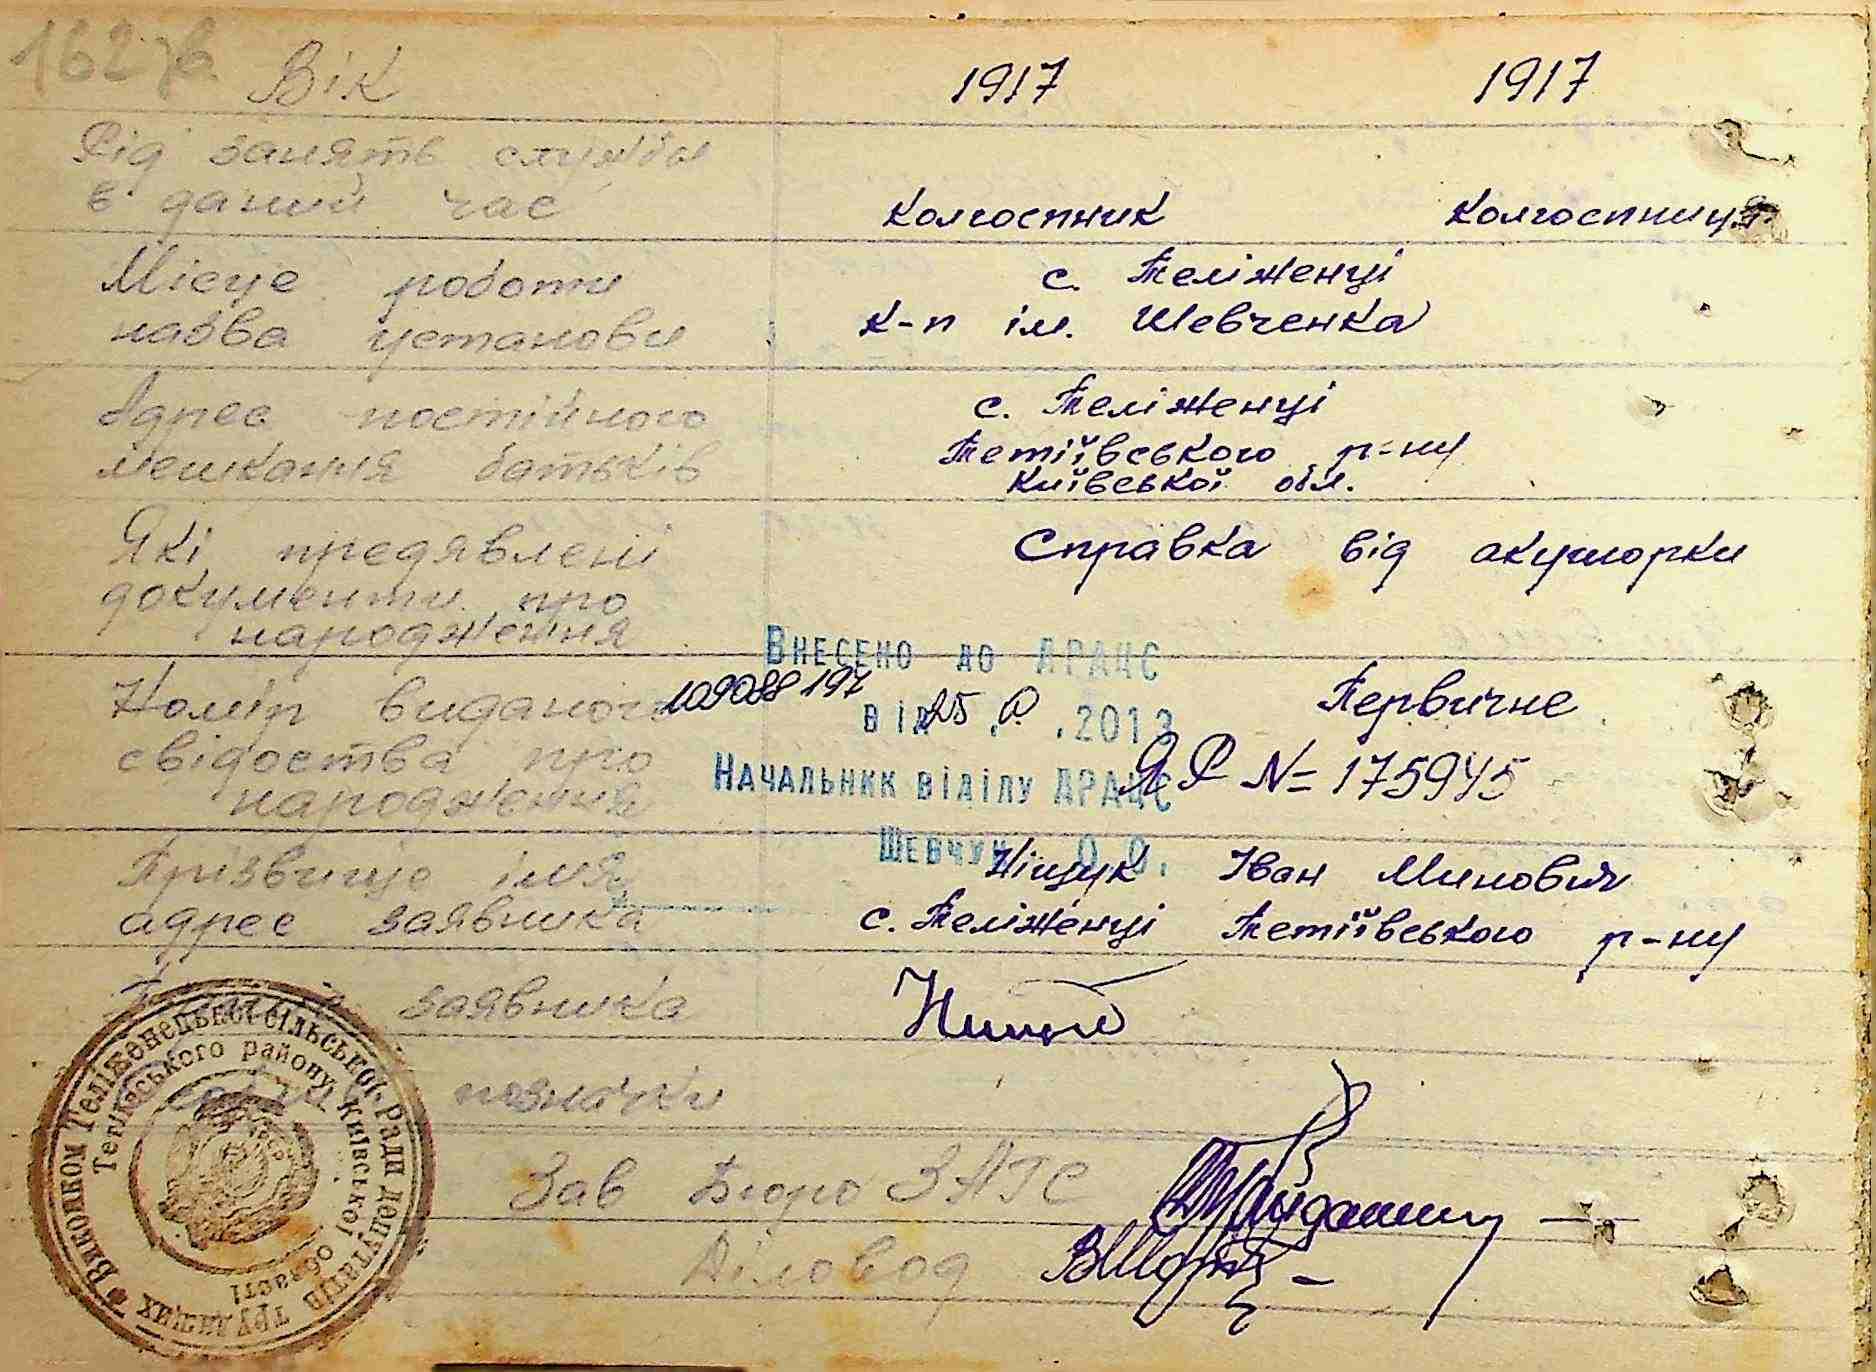 162 зв.
Вік 1917 1917
Рід занять служби
в даний час колгоспник колгоспниця
Місце роботи с. Теліженці
назва установи к-п ім. Шевченка
Адрес постійного с. Теліженці
мешкання батьків Тетіївського р-ну
Київської обл.
Які предявлені Справка від акушорки
документи про
народження
Внесено до ДРАЦС
Номір виданого 109088197 Первичне
від 25. .2013
свідоства про ЯР № 175945
Начальник відділу ДРАЦС
народження
Шевчук О.О.
Прізвище імя Ніщук Іван Минович
адрес заявника с. Теліженці Тетіївського р-ну
заявника
позначки
Зав Бюро ЗАГС
Діловод
Виконком Теліженецької сільської ради депутатів трудящих
Тетіївського району, Київської області